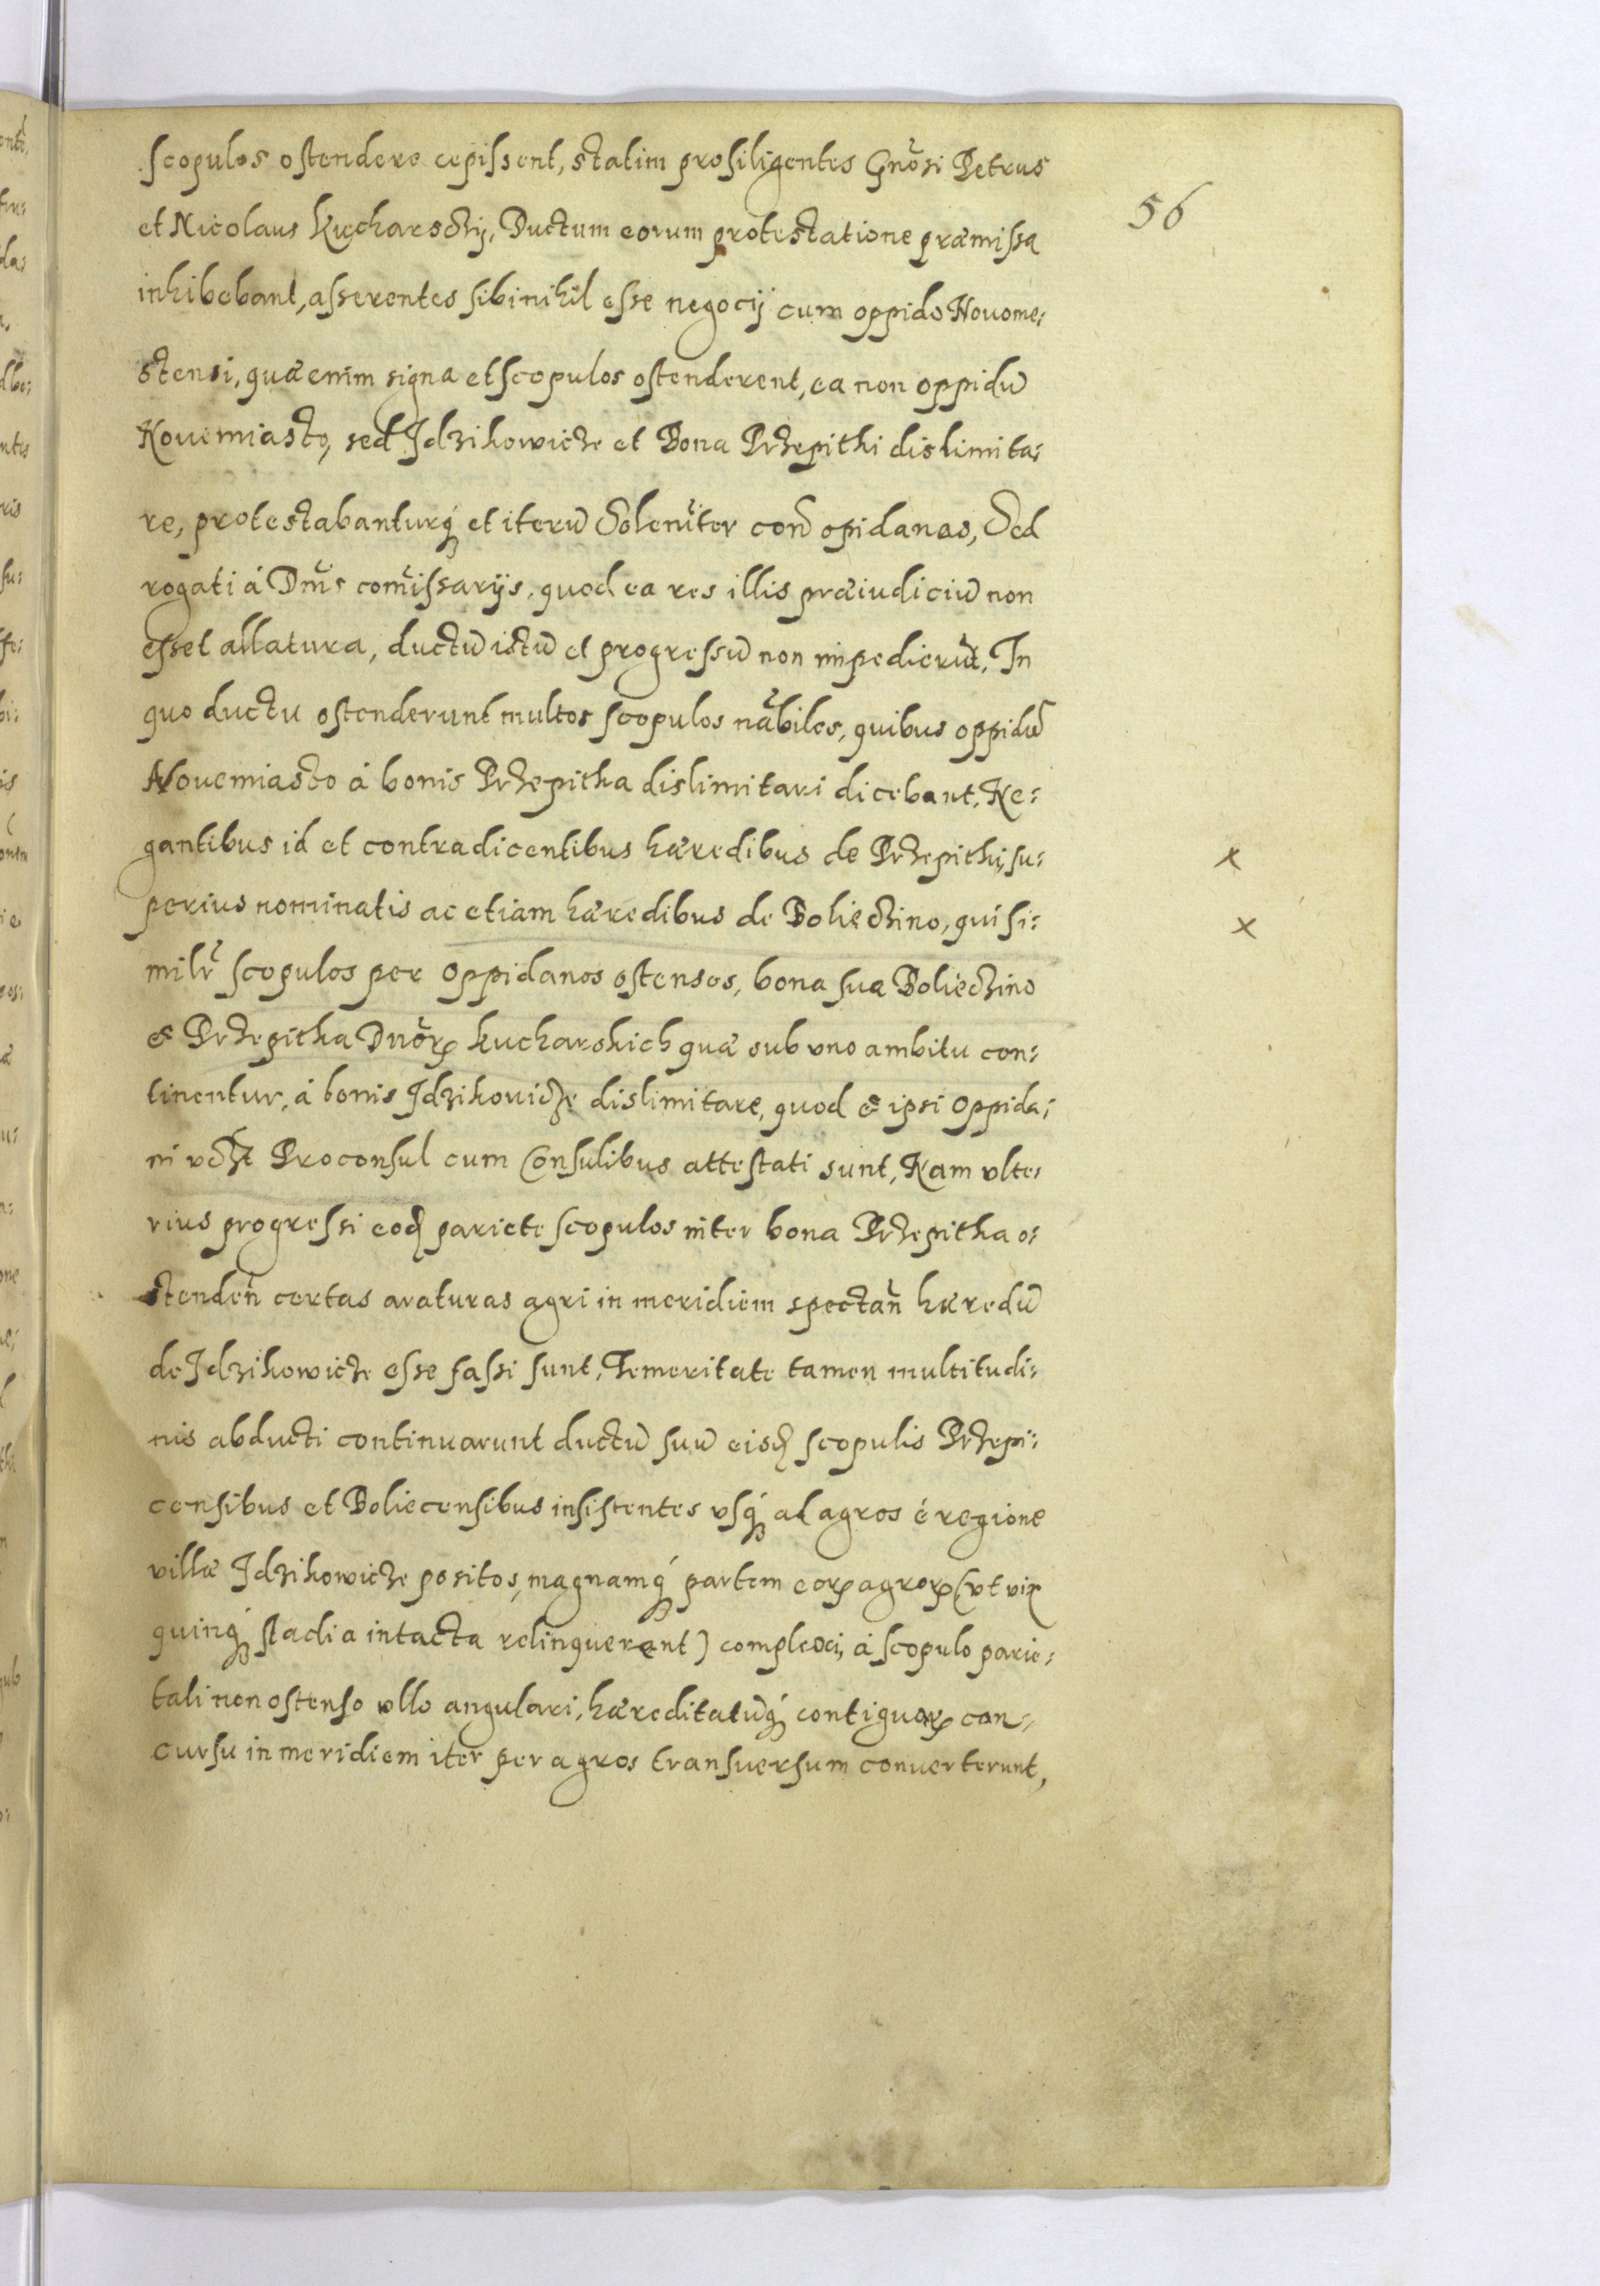 scopulos ostendere cepissent, statim prosiligentes Gnõsi Petrus
56
et Nicolaus Kucharsczij, Ductum eorum protestatione præmissa
inhibebant, asserentes sibi nihil esse negocij cum oppido Nouome:
stensi, quæ enim signa et scopulos ostenderent, ea non oppidũ
Nouemiasto, sed Idzikowicze et Bona Przepithi dislimita:
re, protestabanturq́ et iterũ Solenĩter con̄ opidanos, Sed
rogati á Dn̄is com̄issarijs, quod ea res illis præiudiciũ non
esset allatura, ductũ istũ et progressũ non impedierũt, In
quo ductu ostenderunt multos scopulos nãbiles, quibus oppidũ
Nouemiasto á bonis Przepitha dislimitari dicebant, Ne:
gantibus id et contradicentibus hæredibus de Przepithi, su: x
perius nominatis ac etiam hæredibus de Bolieczino, qui si: x
milr̃ scopulos per Oppidanos ostensos, bona sua Bolieczino
et Przepitha Dnõrꝝ Kucharskich quæ sub vno ambitu con:
tinentur, á bonis Idzikouicze dislimitare, quod et ipsi Oppida:
ni vczt Proconsul cum Consulibus attestati sunt, Nam vlte:
rius progressi eod pariete scopulos inter bona Przepitha o:
stenden̄ certas araturas agri in meridiem spectan̄ hæredũ
de Idzikowicze esse fassi sunt, Temeritate tamen multitudi:
nis abducti continuarunt ductũ suũ eisd scopulis Przepi:
censibus et Boliecensibus insistentes vsq́ ad agros é regione
villæ Idzikowicze positos, magnamq́ partem eorꝝ agrorꝝ (vt vix
quinq́ stadia intacta relinquerent) complexi, á scopulo parie:
tali non ostenso vllo angulari, hæreditatũq́ contiguorꝝ con:
cursu in meridiem iter per agros transuersum conuerterunt,